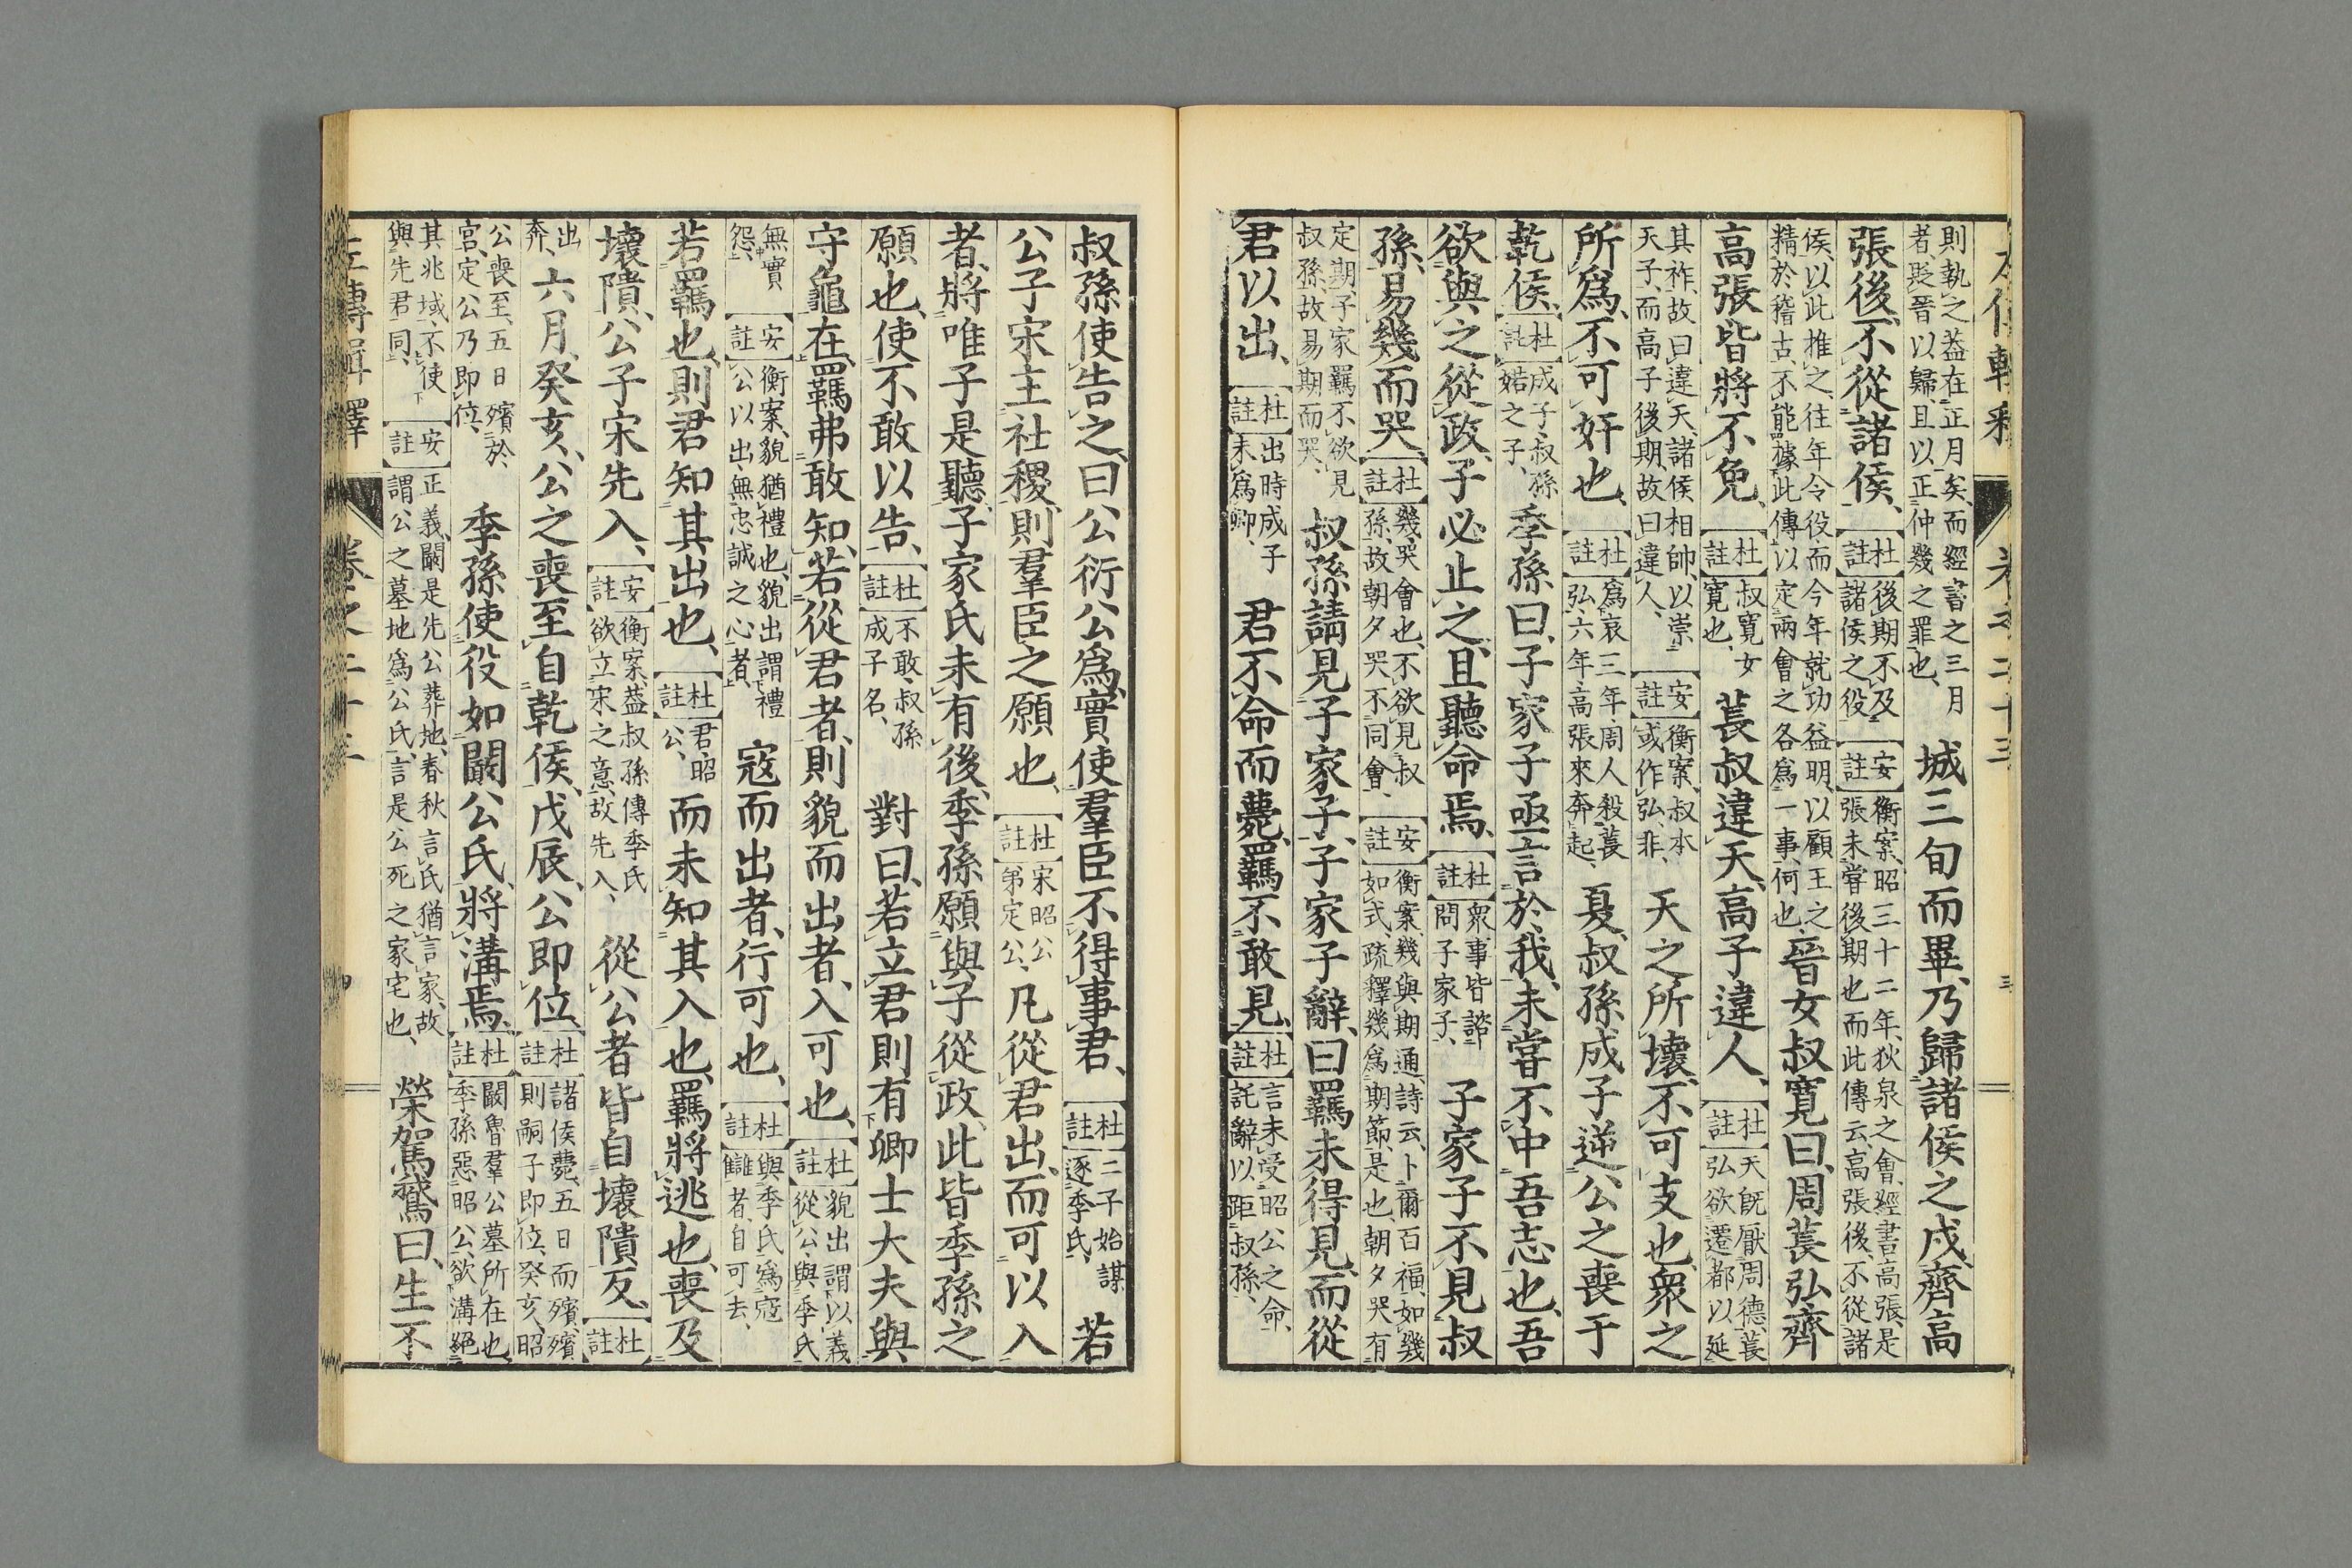 則執之益在正月矣、而經書之三月
者、貶晉以歸、且以正仲幾之罪也、
城三旬而畢、乃歸諸侯之戍、齊高
張後、不從諸侯、
杜註 後期不及諸侯之役
安註 衡案、昭三十二年、狄泉之會、經書高張、是
張未嘗後期也、而此傳云、高張後、不從諸
侯、以此推之、往年令役、而今年就功益明、以顧王之
精於稽古、不能據此傳以定兩會之各爲一事、何也、
晉女叔寬曰、周萇弘齊
高張皆將不免、
杜註 叔寬女寬也、
萇叔違天、高子違人、
杜註 天既厭周德、萇弘欲遷都以延
其祚、故曰違天、諸侯相帥、以崇
天子、而高子後期、故曰違人、
安註 衡案、叔本或作弘、非、
天之所壞、不可支也、衆之
所爲、不可奸也、
杜註 爲哀三年、周人殺萇弘、六年高張來奔起、
夏、叔孫成子逆公之喪于
乾侯、
杜註 成子、叔孫婼之子、
季孫曰、子家子亟言於我、未嘗不中吾志也、吾
欲與之從政、子必止之、且聽命焉、
杜註 衆事皆諮問子家子、
子家子不見叔
孫、易幾而哭、
杜註 幾、哭會也、不欲見叔孫、故朝夕哭不同會、
安註 衡案、幾與期通、詩云、卜爾百福、如幾如式、疏釋幾爲期節、是也、朝夕哭有
定期、子家羈不欲見
叔孫、故易期而哭、
叔孫請見子家子、子家子辭、曰、羈未得見、而從
君以出、
杜註 出時成子未爲卿、
君不命而薨、羈不敢見、
杜註 言未受昭公之命、託辭以距叔孫、
叔孫使告之、曰、公衍公爲、實使羣臣不得事君、
杜註 二子始謀逐季氏、
若
公子宋主社稷、則羣臣之願也、
杜註 宋昭公弟定公、
凡從君出、而可以入
者、將唯子是聽、子家氏未有後、季孫願與子從政、此皆季孫之
願也、使不敢以告、
杜註 不敢、叔孫成子名、
對曰、若立君、則有卿士大夫與
守龜在、羈弗敢知、若從君者、則貌而出者、入可也、
杜註 貌出謂以義從公、與季氏
無實怨、
安註 衡案、貌猶禮也、貌出謂禮公以出、無忠誠之心者、
寇而出者、行可也、
杜註 與季氏爲寇讎者、自可去、
若羈也、則君知其出也、
杜註 君、昭公、
而未知其入也、羈將逃也、喪及
壞隤、公子宋先入、
安註 衡案、益叔孫傳季氏欲立宋之意、故先入、
從公者皆自壞隤反、
杜註
出奔、
六月、癸亥、公之喪至自乾侯、戊辰、公即位、
杜註 諸侯薨、五日而殯、殯則嗣子即位、癸亥、昭
公喪至、五日殯於
宮、定公乃即位、
季孫使役如闞公氏、將溝焉、
杜註 闞魯羣公墓所在也、季孫惡昭公、欲溝絕
其兆域、不使與先君同、
安註 正義、闞是先公葬地、春秋言氏猶言家、故謂公之墓地爲公氏、言是公死之家宅也、
榮駕鵞曰、生不